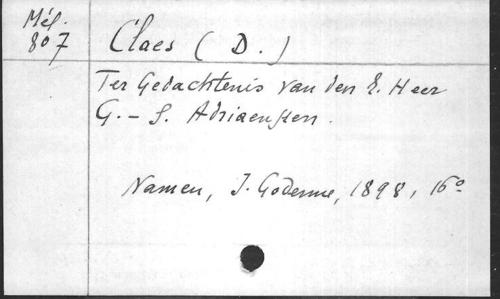 Mél.
807
Claes (D.)
Ter Gedachtenis van den E. Heer
G.-S. Adriaenssen.
Namen, J. Godenne, 1898, 16º